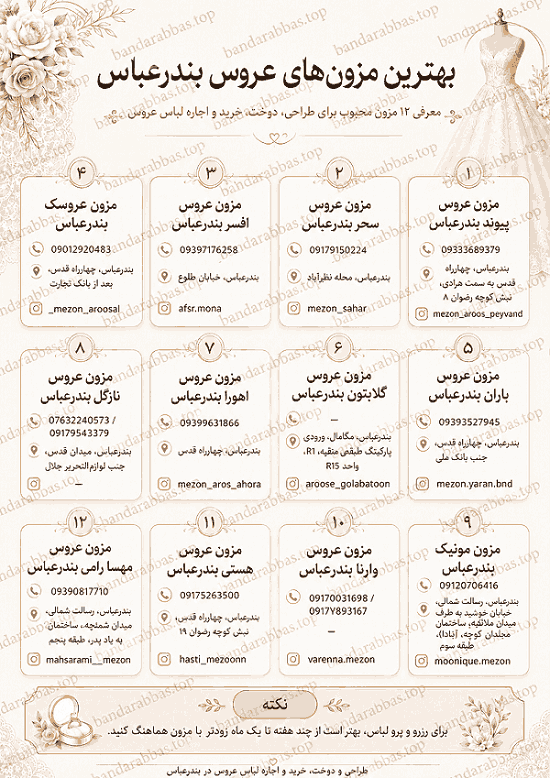 بهترین مزون‌های عروس بندرعباس
معرفی ۱۲ مزون محبوب برای طراحی، دوخت، خرید و اجاره لباس عروس
۱
مزون عروس
پیوند بندرعباس
09333689379
بندرعباس، چهارراه
قدس به سمت هرادی،
نبش کوچه رضوان ۸
mezon_aroos_peyvand
۲
مزون عروس
سحر بندرعباس
09179150224
بندرعباس، محله نظرآباد
mezon_sahar
۳
مزون عروس
افسر بندرعباس
09397176258
بندرعباس، خیابان طلوع
afsr.mona
۴
مزون عروسک
بندرعباس
09012920483
بندرعباس، چهارراه قدس،
بعد از بانک تجارت
_mezon_aroosal
۵
مزون عروس
باران بندرعباس
09393527945
بندرعباس، چهارراه قدس،
جنب بانک ملی
mezon.yaran.bnd
۶
مزون عروس
گلابتون بندرعباس
—
بندرعباس، مگامال، ورودی
پارکینگ طبقه، R1،
واحد R15
aroose_golabatoon
۷
مزون عروس
اهورا بندرعباس
09399631866
بندرعباس، چهارراه قدس
mezon_aros_ahora
۸
مزون عروس
نازگل بندرعباس
07632240573 /
09179543379
بندرعباس، میدان قدس،
جنب لوازم‌التحریر جلال
—
۹
مزون مونیک
بندرعباس
09120706416
بندرعباس، رسالت شمالی،
خیابان خوشید به طرف
میدان ساختمان
کوچه،
طبقه سوم
moonique.mezon
۱۰
مزون عروس
وارنا بندرعباس
09170031698 /
0917Y893167
—
varenna.mezon
۱۱
مزون عروس
هستی بندرعباس
09175263500
بندرعباس، چهارراه قدس،
نبش کوچه رضوان ۱۹
hasti_mezoonn
۱۲
مزون عروس
مهسا رامی بندرعباس
09390817710
بندرعباس، رسالت شمالی،
میدان ساختمان
به یاد پدر، طبقه پنجم
mahsarami__mezon
نکته
برای رزرو و پرو لباس، بهتر است از چند هفته تا یک ماه زودتر با مزون هماهنگ کنید.
طراحی و دوخت، خرید و اجاره لباس عروس در بندرعباس
bandarabbas.top